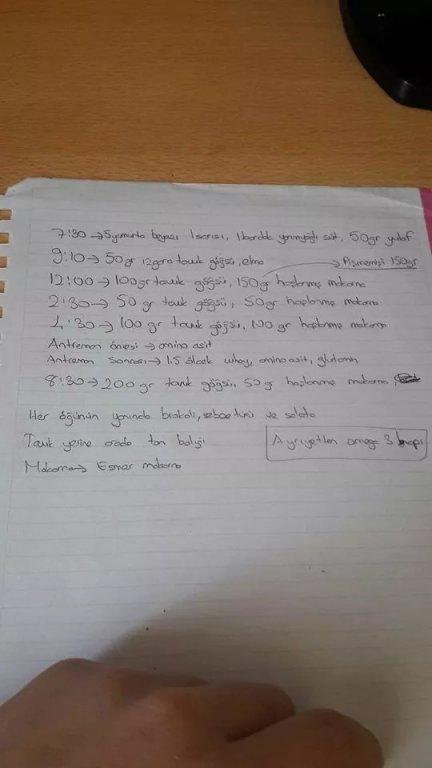 7:30 → 5 yumurta beyazı 1 sarısı, 1 bardak yarımyağlı süt, 50gr yulaf
9:10 → 50gr ızgara tavuk göğsü, elma
→ Pişmemişi 150gr
12:00 → 100gr tavuk göğsü, 150gr haşlanmış makarna
2:30 → 50 gr tavuk göğsü, 50gr haşlanmış makarna
4:30 → 100 gr tavuk göğsü, 100 gr haşlanmış makarna
Antreman öncesi → amino asit
Antreman sonrası → 1.5 ölçek whey, amino asit, glutamin
8:30 → 200 gr tavuk göğsü, 50gr haşlanmış makarna
Her öğünün yanında brokoli, sebze türü ve salata
Tavuk yerine arada ton balığı
Ayriyetten omega 3 hapı
Makarna → Esmer makarna